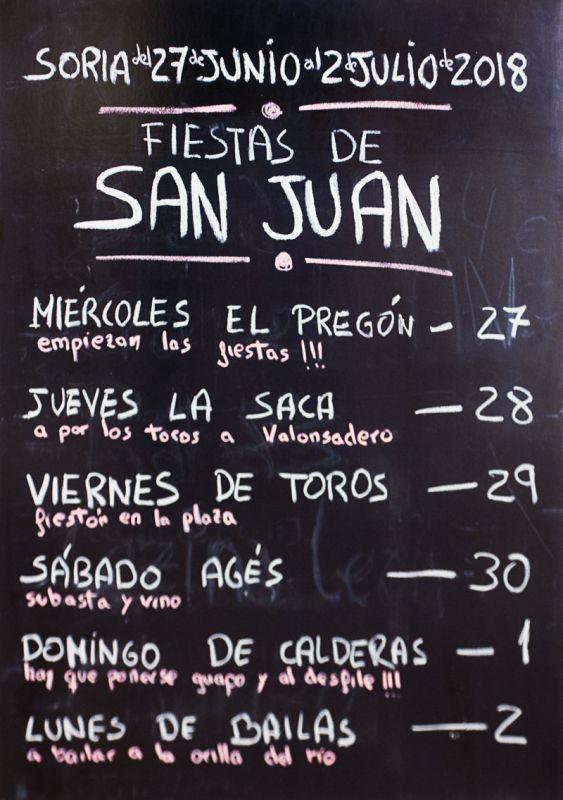 SORIA del 27 de JUNIO al 2 de JULIO de 2018
FIESTAS DE
SAN JUAN
MIÉRCOLES EL PREGÓN - 27
empiezan las fiestas !!!
JUEVES LA SACA — 28
a por los toros a Valonsadero
VIERNES DE TOROS — 29
fiestón en la plaza
SÁBADO AGÉS — 30
subasta y vino
DOMINGO DE CALDERAS — 1
hay que ponerse guapo y al desfile !!!
LUNES DE BAILAS — 2
a bailar a la orilla del río